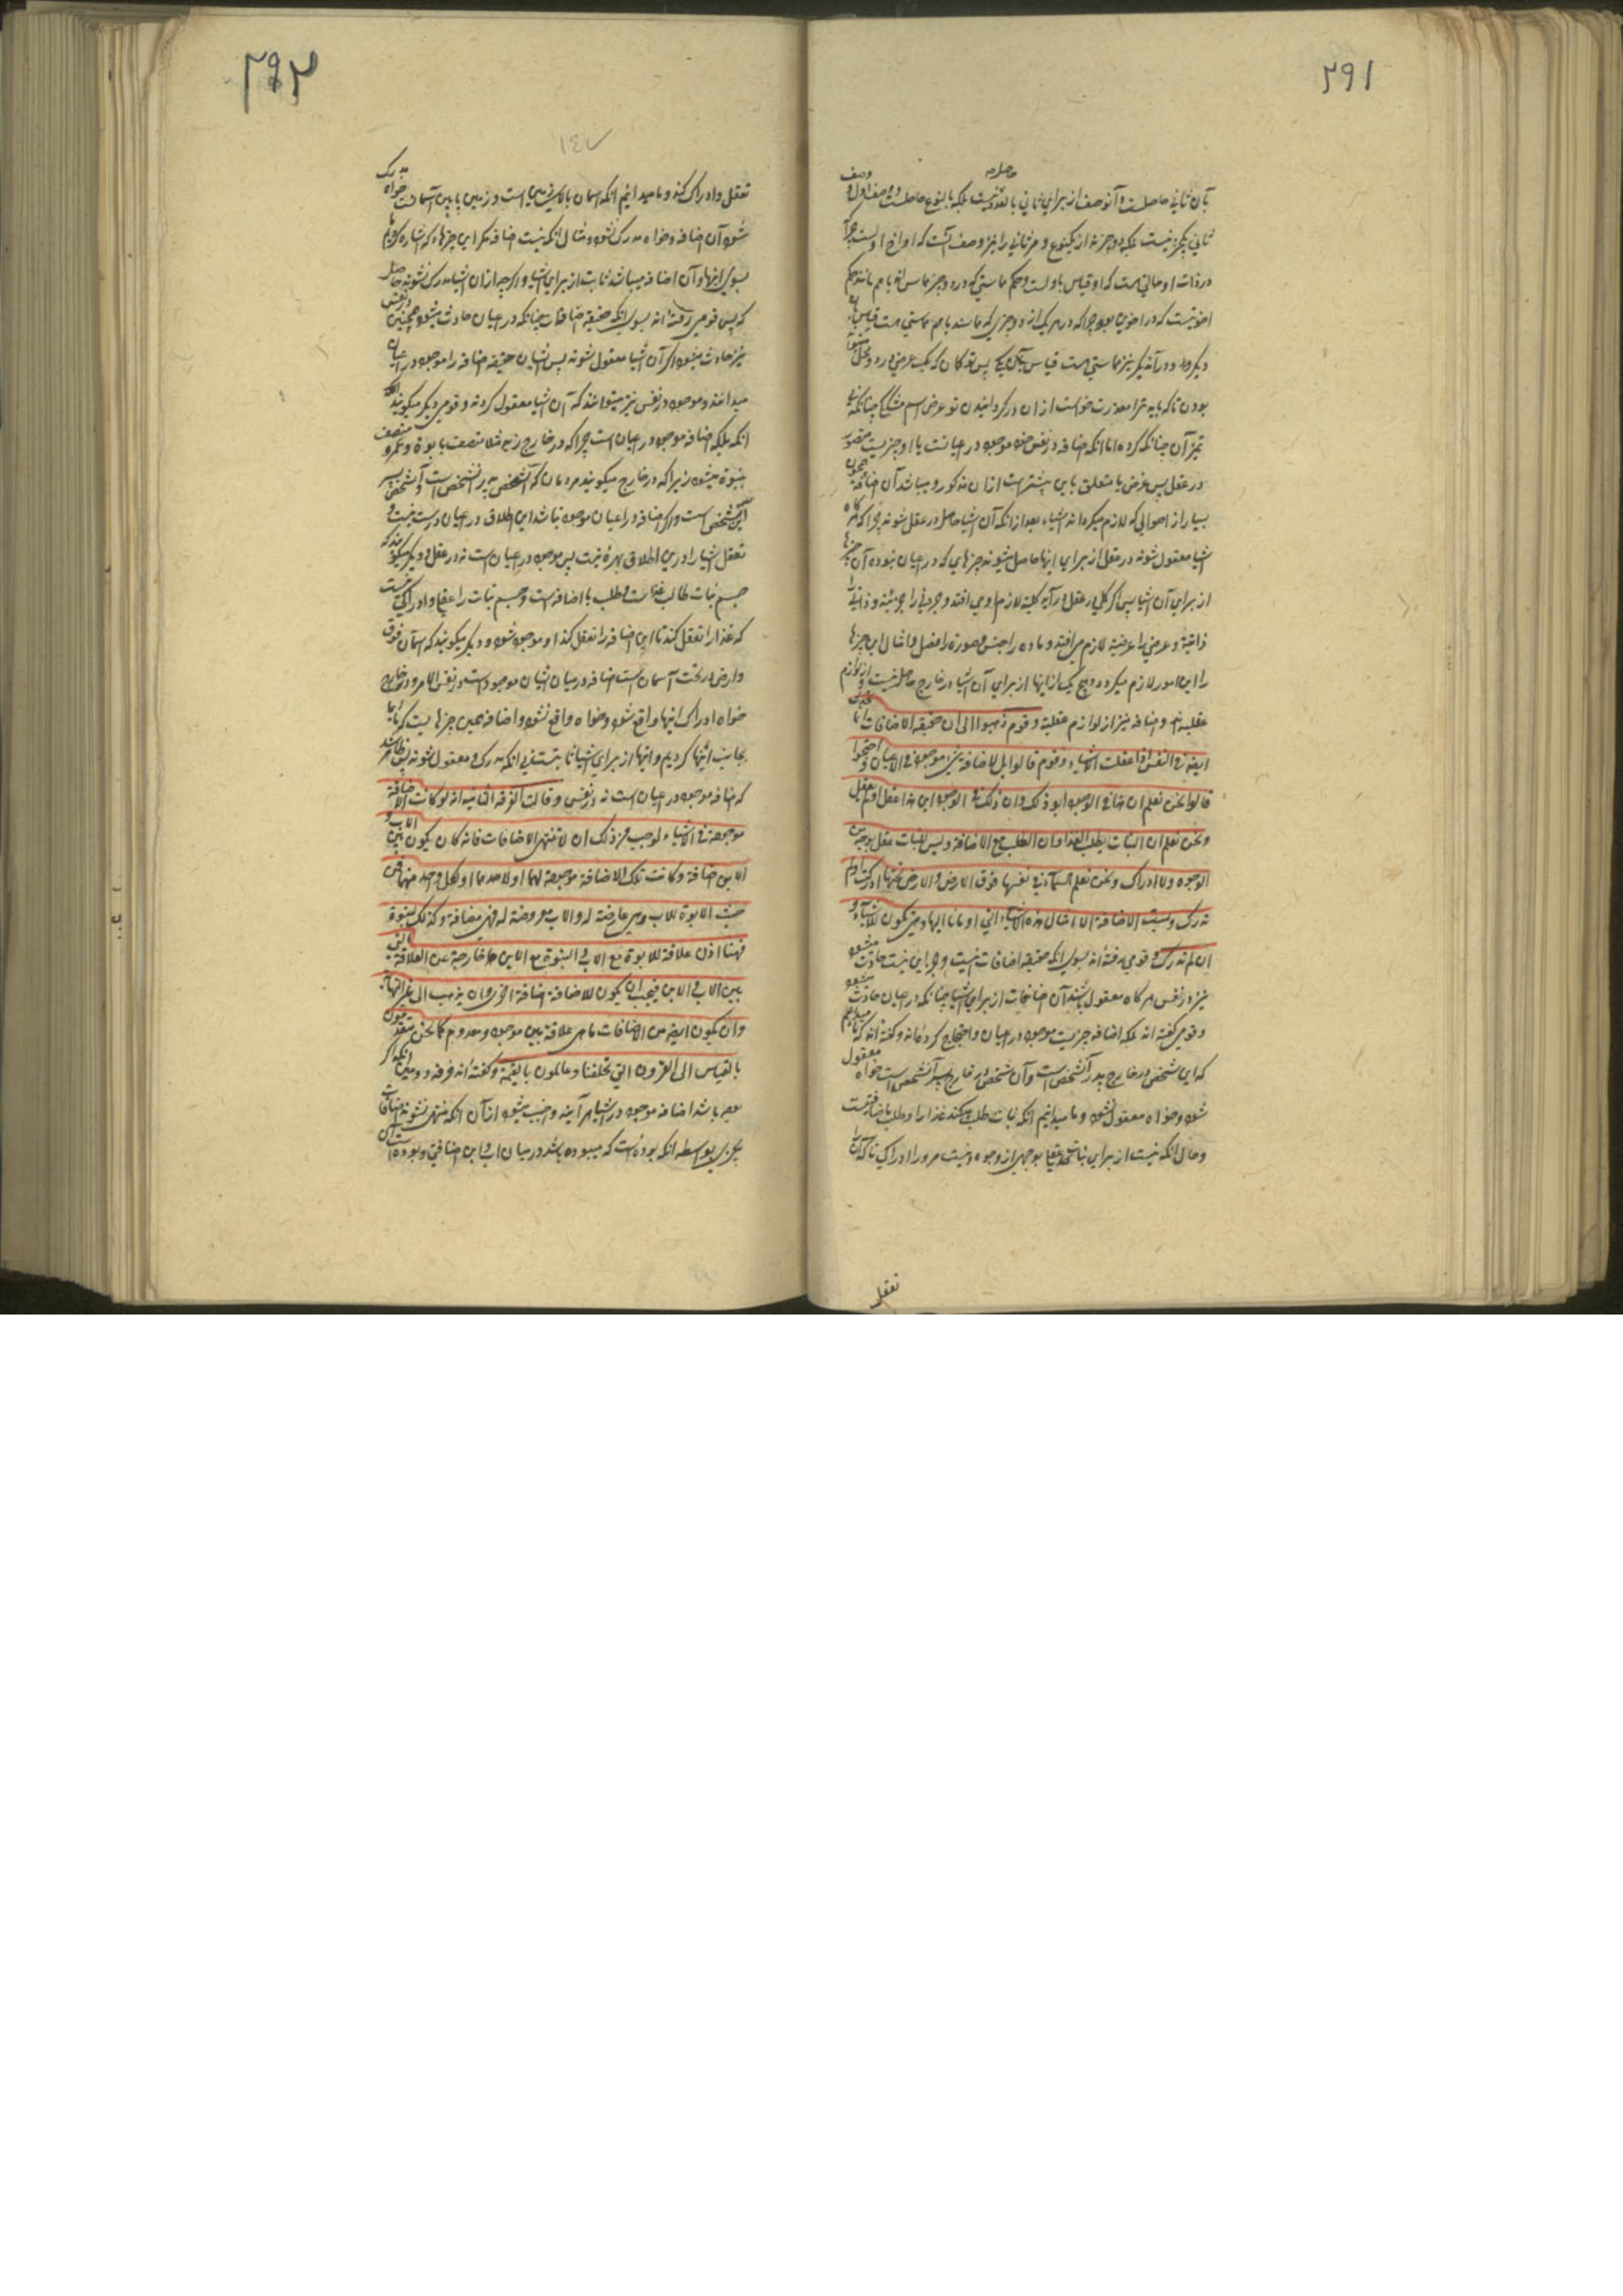 ۲۹۱
حاصله
بآن ثانی حاصلست و آنوصف از برای ثانی بالعدد نیست بلکه بالنوع حاصلست و وصف اول و وصف
ثانی یکچیز نیست بلکه دو چیزند از یکنوع و مر ثانی را نیز وصف آنست که او اخ اولست چرا که
در ذات او حالتی هست که او قیاس باولست و حکم مماستی که در دو چیز مماس اند باهم مانند حکم
اخوتیست که در اخوین بود چرا که در هر یک از دو چیزی که مماسند باهم مماستی هست قیاس بآن
دیگر و در آندیگر نیز مماستی هست قیاس بآن یکی پس تو گمان مکن که یک عرض در دو محل متحقق
بودن تا که باید ترا معذرت خواست از آن در گردانیدن تو عرض اسم مشکک چنانکه
تمیز آن چنانکه کرده اما آنکه اضافه در نفس خود موجود در اعیانست یا او چیزیست متصور
در عقل پس غرض ما متعلق باین بیشتر است از آن مذکور و میباشد آن اضافه همچون
بسیار از احوالی که لازم میگردانند اشیاء بعد از آنکه آن اشیا حاصل در عقل شوند چرا که هر گاه
اشیا معقول شوند در عقل از برای اینها حاصل میشوند چیزهایی که در اعیان نبوده آن چیزها
از برای آن اشیا پس اگر کلی در عقل درآید کلیة لازم او می افتد و جزئی را جزئیة و ذاتی را
ذاتیة و عرضی را عرضیة لازم می افتد و ماده را جنس و صورة را فصل و امثال این چیزها
را این امور لازم میگردد و هیچ یک از اینها از برای آن اشیا در خارج حاصل نیست و از لوازم
عقلیه اند و اضافه نیز از لوازم عقلیة و قوم ذهبوا الی ان حقیقة الاضافات انما تحدث
ایضا فی النفس اذا عقلت الاشیاء و قوم قالوا بل الاضافة شیء موجود فی الاعیان و احتجوا
قالوا نحن نعلم ان هذا فی الوجود ابو ذلک و ان ذلک فی الوجود ابن هذا عقل او لم یعقل
و نحن نعلم ان النبات یطلب الغذا و ان الطلب مع الاضافة و لیس للنبات عقل بوجه من
الوجوه و لا ادراک و نحن نعلم السماء فی نفسها فوق الارض و الارض تحتها ادرکت او لم
تدرک و لیست الاضافة الا امثال هذه الاشیاء التی اومانا الیها و هی تکون للاشیاء و
ان لم تدرک و قومی رفته اند بسوی آنکه حقیقة اضافات نیست و جز این نیست حادث میشود
نیز در نفس هر گاه معقول باشند آن اضافات از برای اشیا چنانکه در اعیان حادث میشود
و قومی گفته اند بلکه اضافه چیزیست موجود در اعیان و احتجاج کرده اند و گفته اند که ما میدانیم
که این شخص در خارج پدر آنشخص است و آن شخص در خارج پسر آنشخص است خواه معقول
شود و خواه معقول نشود و ما میدانیم آنکه نبات طلب میکند غذا را و طلب باضافتست
و حال آنکه نیست از برای نبات تعقلی بوجهی از وجوه و نیست مرورا ادراکی تا که آنرا
تعقل
۲۹۲
١٤٧
تعقل و ادراک کند و ما میدانیم آنکه آسمان بالای زمین است و زمین پایین آسمانست خواه مدرک
شود آن اضافه و خواه مدرک نشود و مثال آنکه نیست اضافه مگر این چیزها که اشاره کردیم ما
بسوی اینها و آن اضافه میباشد ثابت از برای اشیا و اگر چه از آن اشیا مدرک نشوند حاصل
که پس قومی رفته اند بسوی آنکه حقیقة اضافات چنانکه در اعیان حادث میشود همچنین در نفس
نیز حادث میشود اگر آن اشیا معقول شوند پس ایشان حقیقة اضافه را موجود در اعیان
میدانند و موجود در نفس نیز میدانند که آن اشیا معقول کردند و قومی دیگر میگویند
آنکه بلکه اضافه موجود در اعیان است چرا که در خارج زید مثلا متصف بابوة و عمرو متصف
ببنوة میشود زیرا که در خارج میگویند مردمان که آنشخص پدر آنشخص است و آنشخص پسر
این شخص است و اگر اضافه در اعیان موجود نباشد این اطلاق در اعیان درست نیست و
تعقل اشیا را در این اطلاق بهره نیست پس موجود در اعیان است نه در عقل و دیگر میگویند که
جسم نبات طالب غذاست و طلب با اضافه است و جسم نبات را عقل و ادراکی نیست
که غذا را تعقل کند تا این اضافه را تعقل کند او موجود شود و دیگر میگویند که آسمان فوق
و ارض در تحت آسمان است اضافه در میان ایشان موجود است در نفس الامر و در خارج
خواه ادراک اینها واقع شود و خواه واقع نشود و اضافه همین چیزهاییست که ما ایما
بجانب اینها کردیم و اینها از برای اشیا ثابتند بی آنکه مدرک و معقول شوند پس ظاهر شد
که اضافه موجود در اعیان است نه در نفس و قالت الفرقة الثانیة انه لو کانت الاضافة
موجودة فی الاشیاء لوجب من ذلک ان لا تنتهی الاضافات فانه کان یکون بین الاب و
الابن اضافة و کانت تلک الاضافة موجودة لهما او لاحدهما او لکل واحد منهما فمن
حیث الابوة للاب و هی عارضة له و الاب معروضة له فهی مضافة و کذلک البنوة
فهنا اذن علاقة للابوة مع الاب و البنوة مع الابن خارجة عن العلاقة التی
بین الاب و الابن فیجب ان یکون للاضافة اضافة اخری و ان یذهب الی غیر النهایة
و ان یکون ایضا من الاضافات ما هی علاقة بین موجود و معدوم کما نحن متقدمون
بالقیاس الی القرون التی تخلفنا و عالمون بالقیمة و گفته اند فرقه دویمین آنکه اگر
بوده باشد اضافه موجود در اشیا هر آینه واجب میشود از آن آنکه منتهی نشوند اضافات
بچیزی بواسطه آنکه بوده است که میبوده باشد در میان اب و ابن اضافتی و بوده است آن